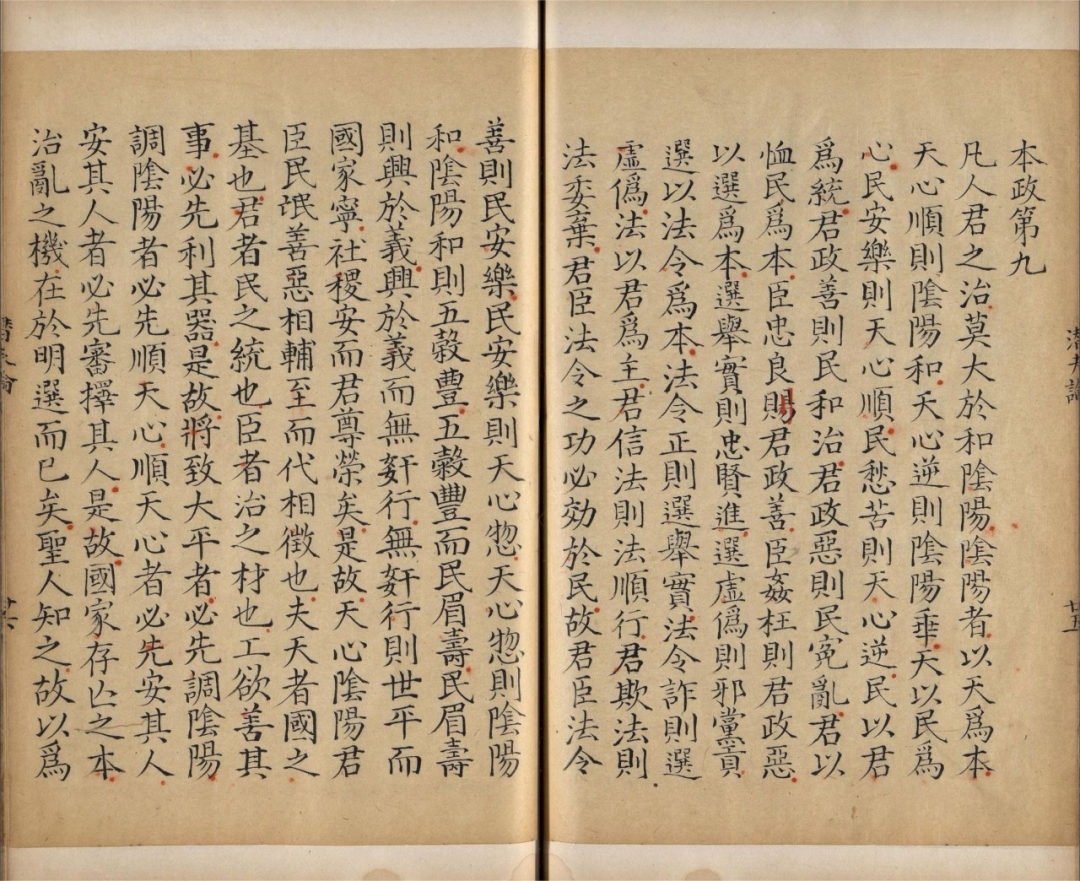 本政第九
凡人君之治莫大於和陰陽陰陽者以天爲本
天心順則陰陽和天心逆則陰陽乖天以民爲
心民安樂則天心順民愁苦則天心逆民以君
爲統君政善則民和治君政惡則民冤亂君以
恤民爲本臣忠良賜君政善臣姦枉則君政惡
以選爲本選舉實則忠賢進選虛僞則邪黨貢
選以法令爲本法令正則選舉實法令詐則選
虛僞法以君爲主君信法則法順行君欺法則
法委棄君臣法令之功必効於民故君臣法令
善則民安樂民安樂則天心惣天心惣則陰陽
和陰陽和則五穀豊五穀豐而民眉壽民眉壽
則興於義興於義而無姧行無姧行則世平而
國家寧社稷安而君尊榮矣是故天心陰陽君
臣民氓善惡相輔至而代相徵也夫天者國之
基也君者民之統也臣者治之材也工欲善其
事必先利其器是故將致大平者必先調陰陽
調陰陽者必先順天心順天心者必先安其人
安其人者必先審擇其人是故國家存亾之本
治亂之機在於明選而已矣聖人知之故以爲